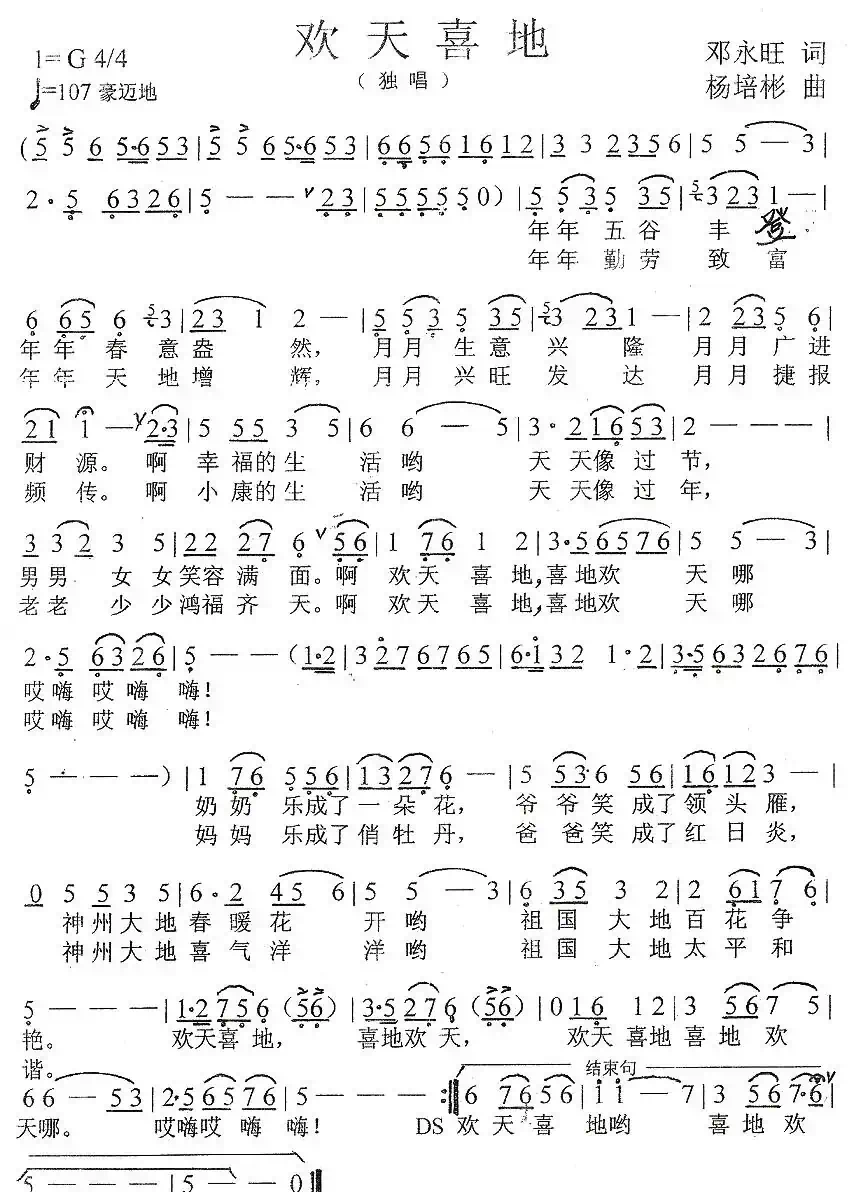 欢天喜地
1= G 4/4
（独唱）
邓永旺 词
♩=107 豪迈地
杨培彬 曲
(5 5 6 5·653|5 5 65·653|66561612|33 2356|5 5 — 3|
2·5 6326|5 — — ∨ 23|555550)|5 53 5 35|5 3 231 —|
年年 五谷 丰 登
年年 勤劳 致 富
6 65 6 5 3|23 1 2 —|5 53 5 35|5 3 231 —|2 235 5|
年年春意盎 然， 月月生意兴 隆 月月广进
年年天地增 辉， 月月兴旺发 达 月月捷报
21 1 — ∨2·3|5 55 3 5|6 6 — 5|3· 21653|2 — — —|
财 源。啊 幸福的生 活哟 天 天像过节，
频 传。啊 小康的生 活哟 天 天像过年，
3 32 3 5|22 27 6 ∨56|1 76 1 2|3·56576|5 5 — 3|
男男 女女笑容满 面。啊 欢天喜地,喜地欢 天哪
老老 少少鸿福齐 天。啊 欢天喜地,喜地欢 天哪
2·5 6326|5 — —（1·2|32767665|6·132 1·2|3·5632676|
哎嗨哎嗨 嗨！
哎嗨哎嗨 嗨！
5 — — —）|1 76 556|13276 —|5 53·6 56|16123 —|
奶奶 乐成了一朵花， 爷爷笑成了领头雁，
妈妈 乐成了俏牡丹， 爸爸笑成了红日炎，
0 5 535|6·2 45 6|5 5 — 3|6 35 3 2|2 61 7 6|
神州大地春暖花 开哟 祖国大地百花争
神州大地喜气洋 洋哟 祖国大地太平和
5 — — —|1·2756（56）|3·5276（56）|016 12|3 567 5|
艳。 欢天喜地， 喜地欢天， 欢天喜地喜地 欢
谐。
结束句
66 — — 53|2·56576|5 — — —:‖6 7656|11 — 7|3 567·6∨|
天哪。 哎嗨哎嗨 嗨！ DS 欢天喜 地哟 喜地欢
5 — — —|5 — — 0‖